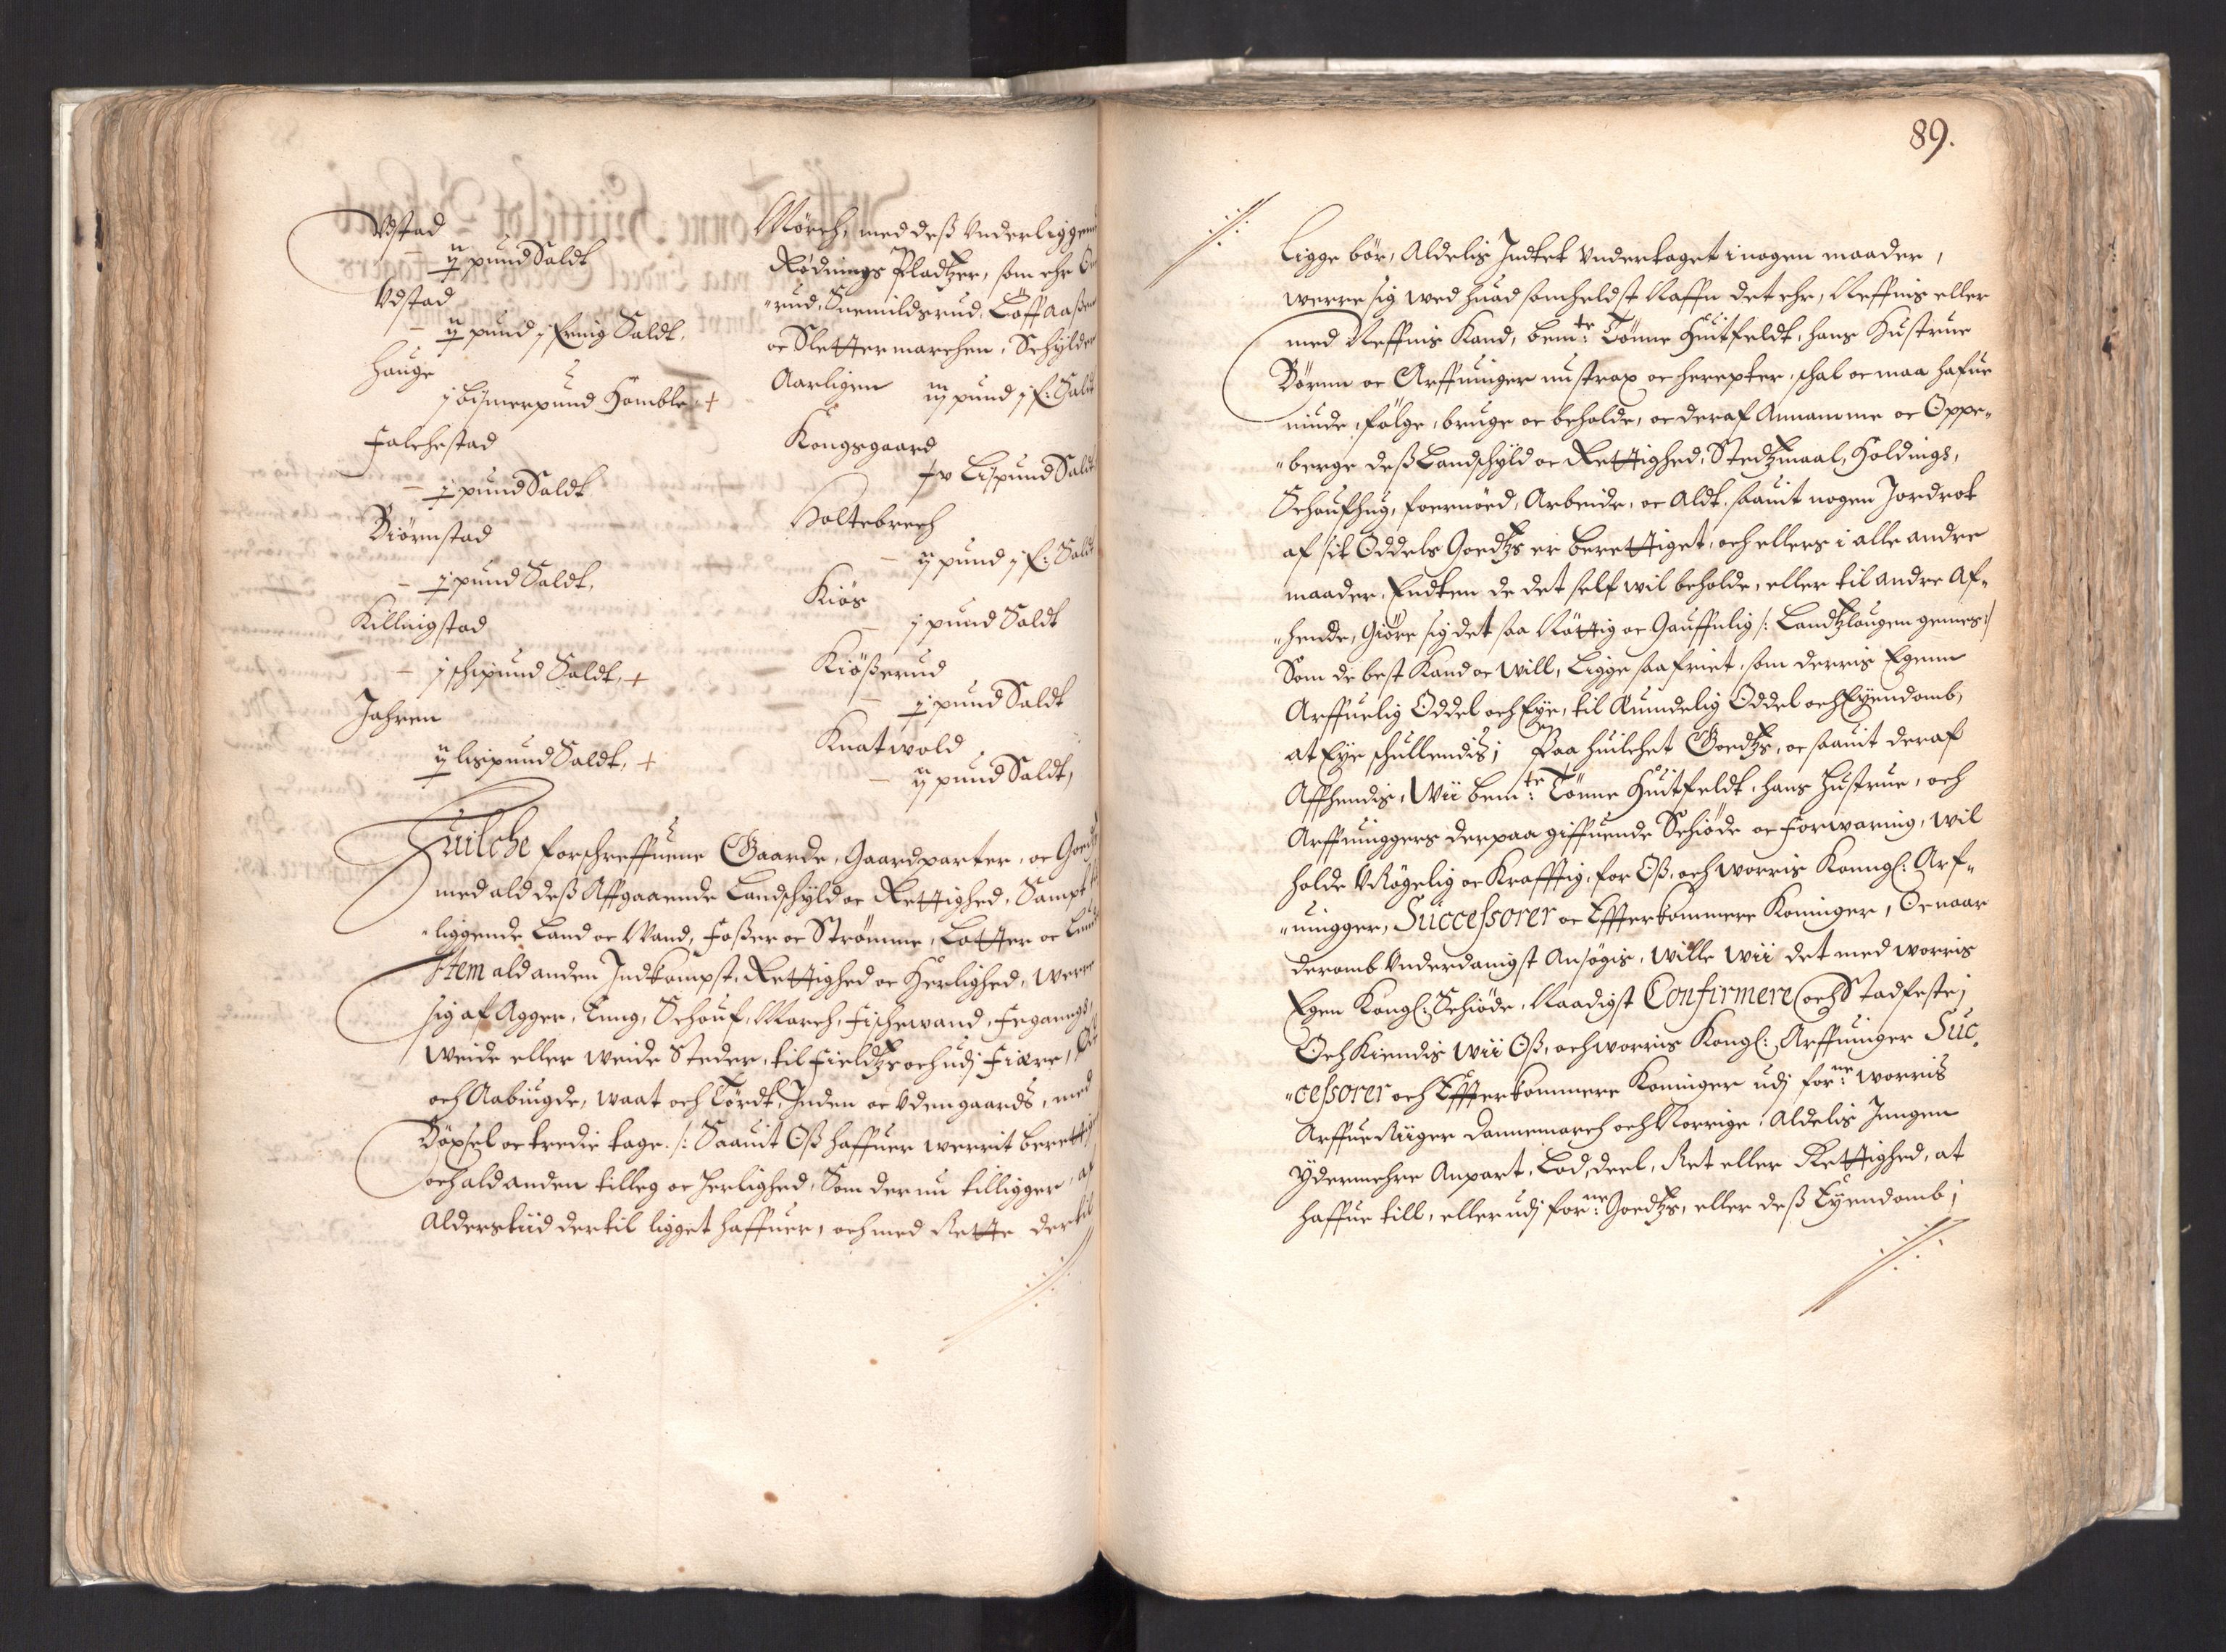 Vestad
ij pund Saldt
Vdstad
ij pund j fering Saldt.
Hauge
j bismerpund Homble +
Falchestad
j pund Saldt
Biörnstad
j pund Saldt.
Killingstad
j schipund Saldt, +
Jahren
ij lispund Saldt, +
Mörch, med deß Vnderliggend
Rödnings Pladtzer, som ehr
rud, Snemildsrud, Löffaaßen
oc Slettermarchen, Schylder
Aarligen iij pund j f: Saldt
Kongsgaard
v Lispund Saldt
Holtebrech
ij pund j f: Saldt
Kiös
j pund Saldt
Kiößerud
j pund Saldt
Knatwold
ij pund Saldt,
Huilche forschreffuene Gaarde, Gaardparter, oc Goedtz
med ald deß Affgaaende Landschyld oc Rettighed, Sampt
"liggende Land oc Vand, Foßer oc Strömme, Lotter oc Lunde
Item ald anden Indkompst, Rettighed oc Herlighed, werre
sig af Agger, Eng, Schouf, March, Fischevand, Fegangs,
Weide eller Weide Steder, til Fieldtz och udj Fiære,
och Aabiugde, waat och Tördt, Inden oc Vdengaards, med
Böxsel oc tredie tage /: Saauit Oß haffuer werrit berettiget
och ald anden tilleg oc herlighed, Som der nu tilligger, af
Alderstiid dertil ligget haffuer, och med Rette dertil
89.
Ligge bör, Aldelis Indtet Vndertaget i nogen maader,
werre sig wed huad somheldst Naffn det ehr, Neffnis eller
med Neffnis Kand, bem:te Tönne Huitfeldt, hans Hustrue
Börnn oc Arffuinger nu strax oc herepter, schal oc maa hafue
niude, fölge, bruge oc beholde, oc deraf Annamme oc Oppe"
"berge deß Landschyld oc Rettighed, Stedtzmaal, Holdings,
Schoufhug, foernöed, Arbeide, oc aldt saauit nogen Jordrot
af sit Oddels Goedtzs er berettiget, och ellers i alle andre
maader, Endten de det self wil beholde, eller til andre Af"
"hende, Giöre sig det saa Nöttig oc Gauffnlig /: Landtzlougen gemes :/
Som de best Kand oc will, Ligge saa friet, som derris Egenn
Arffuelig Oddel och Eye, til Euindelig Oddel och Eyendomb,
at Eye schullendis; Paa huilchet Goedtzs, oc saauit deraf
Affhendis, Wii bem:te Tönne Huitfeldt, hans Hustrue, och
Arffuinggers derpaa giffuende Schiöde oc Forwaring, wil
holde VRögelig oc Krafftig, for Oß, och worris Konngl: Arf"
"uingger, Successorer oc Effterkommere Koninger, Oc naar
deromb Vnderdanigst Ansögis, wille wii det med worris
Egen Kongl: Schiöde, Naadigst Confirmere och Stadfeste;
Och Kiendis wii Oß, och worris Kongl: Arffuinger Suc"
"cessorer och Effterkommere Koninger udj for:ne worris
Arffue Riiger Dannemarch och Norrige, Aldelis Inngen
ydermehre Anpart, Lod, deel, Ret eller Rettighed, at
haffue till, eller udj for:ne Goedtzs, eller deß Eyendomb;